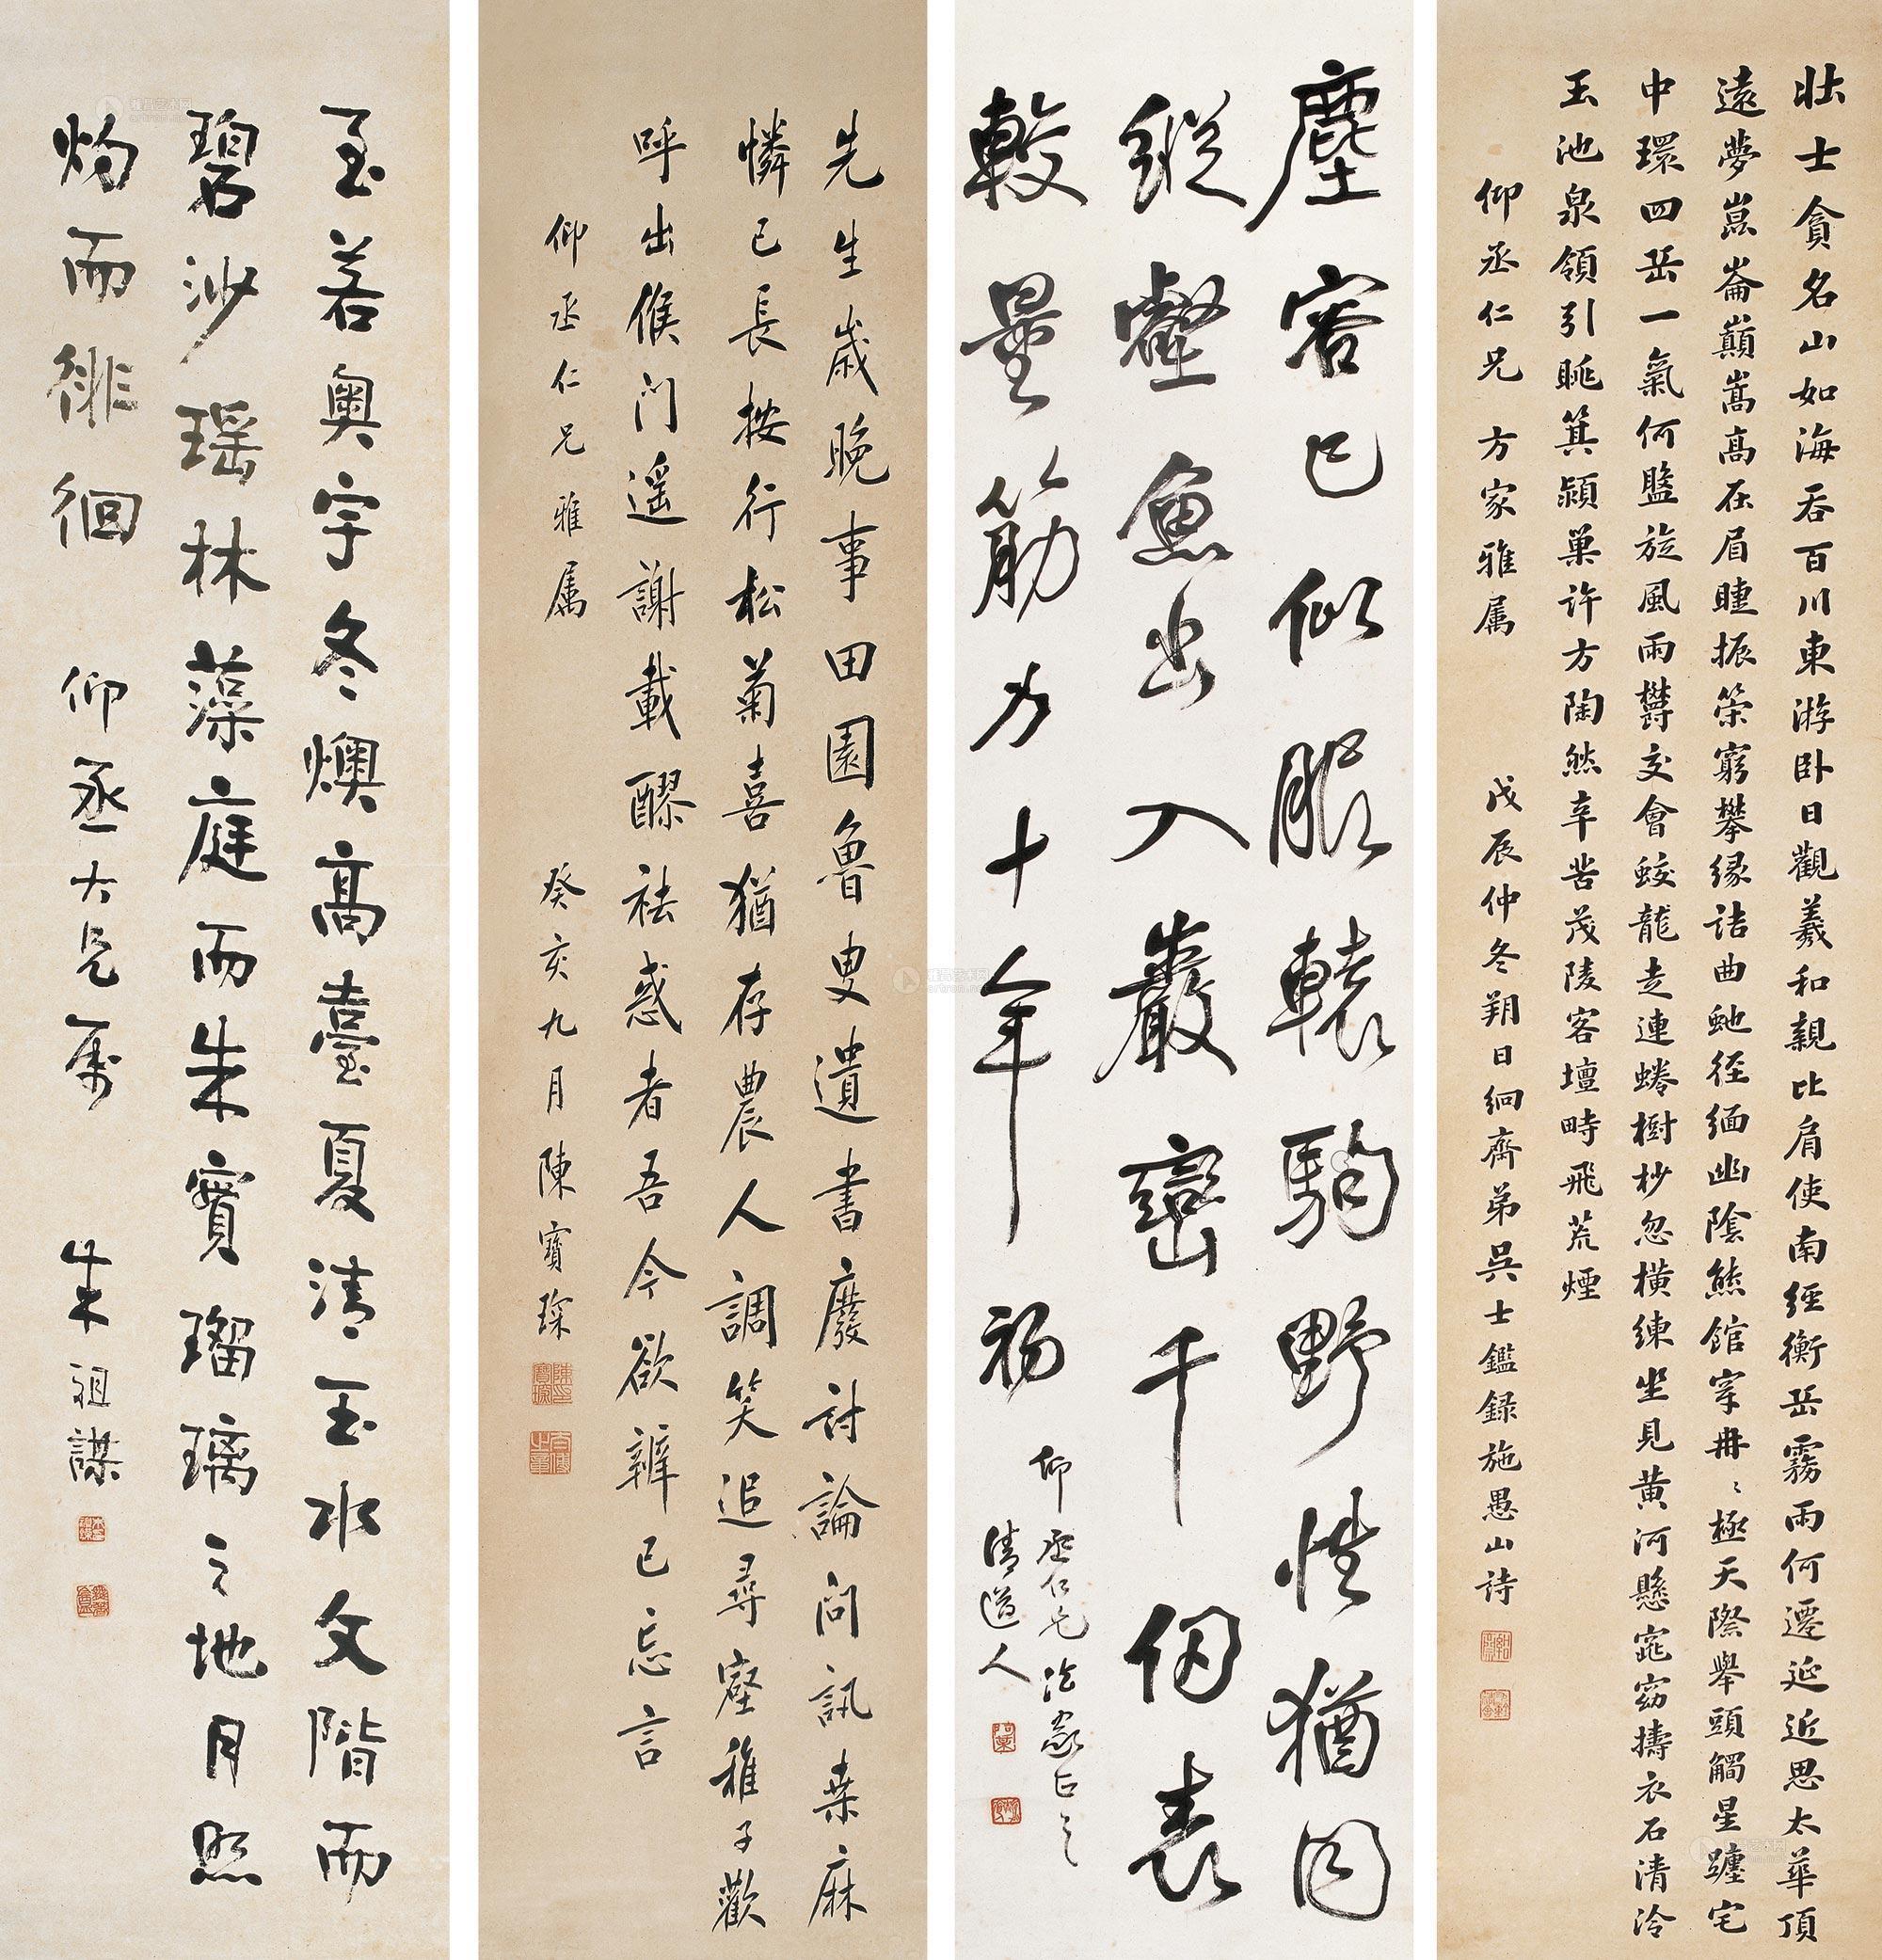 壯士貪名山如海吞百川東游卧日觀羲和親比肩使南經衡岳霧雨何遷延近思太華頂
遠夢崑崙巔嵩高在眉睫振策窮攀緣詰曲虵徑緬幽陰熊館穿冉冉極天際舉頭觸星躔宅
中環四岳一氣何盤旋風雨欝交會蛟龍走連蜷樹杪忽橫練坐見黃河懸窕窈擣衣石清泠
玉池泉領引眺箕潁巢許方陶然辛苦茂陵客壇畤飛荒煙
仰丞仁兄方家雅属 戊辰仲冬朔日絅齋弟吳士鑑錄施愚山詩
塵容已似服轅駒野性猶同
縱壑魚出入巖巒千仞表
較量筋力十年初
仰丞仁兄法家正之
清道人
先生歲晚事田園魯叟遺書廢討論問訊桑麻
憐已長按行松菊喜猶存農人調笑追尋壑稚子歡
呼出候門遥謝載醪祛惑者吾今欲辨已忘言
仰丞仁兄雅属 癸亥九月陳寶琛
至若奥宇冬燠高臺夏清玉水文階而
碧沙瑶林藻庭而朱實瑠璃之地月照
灼而徘徊 仰丞大兄属 朱祖謀